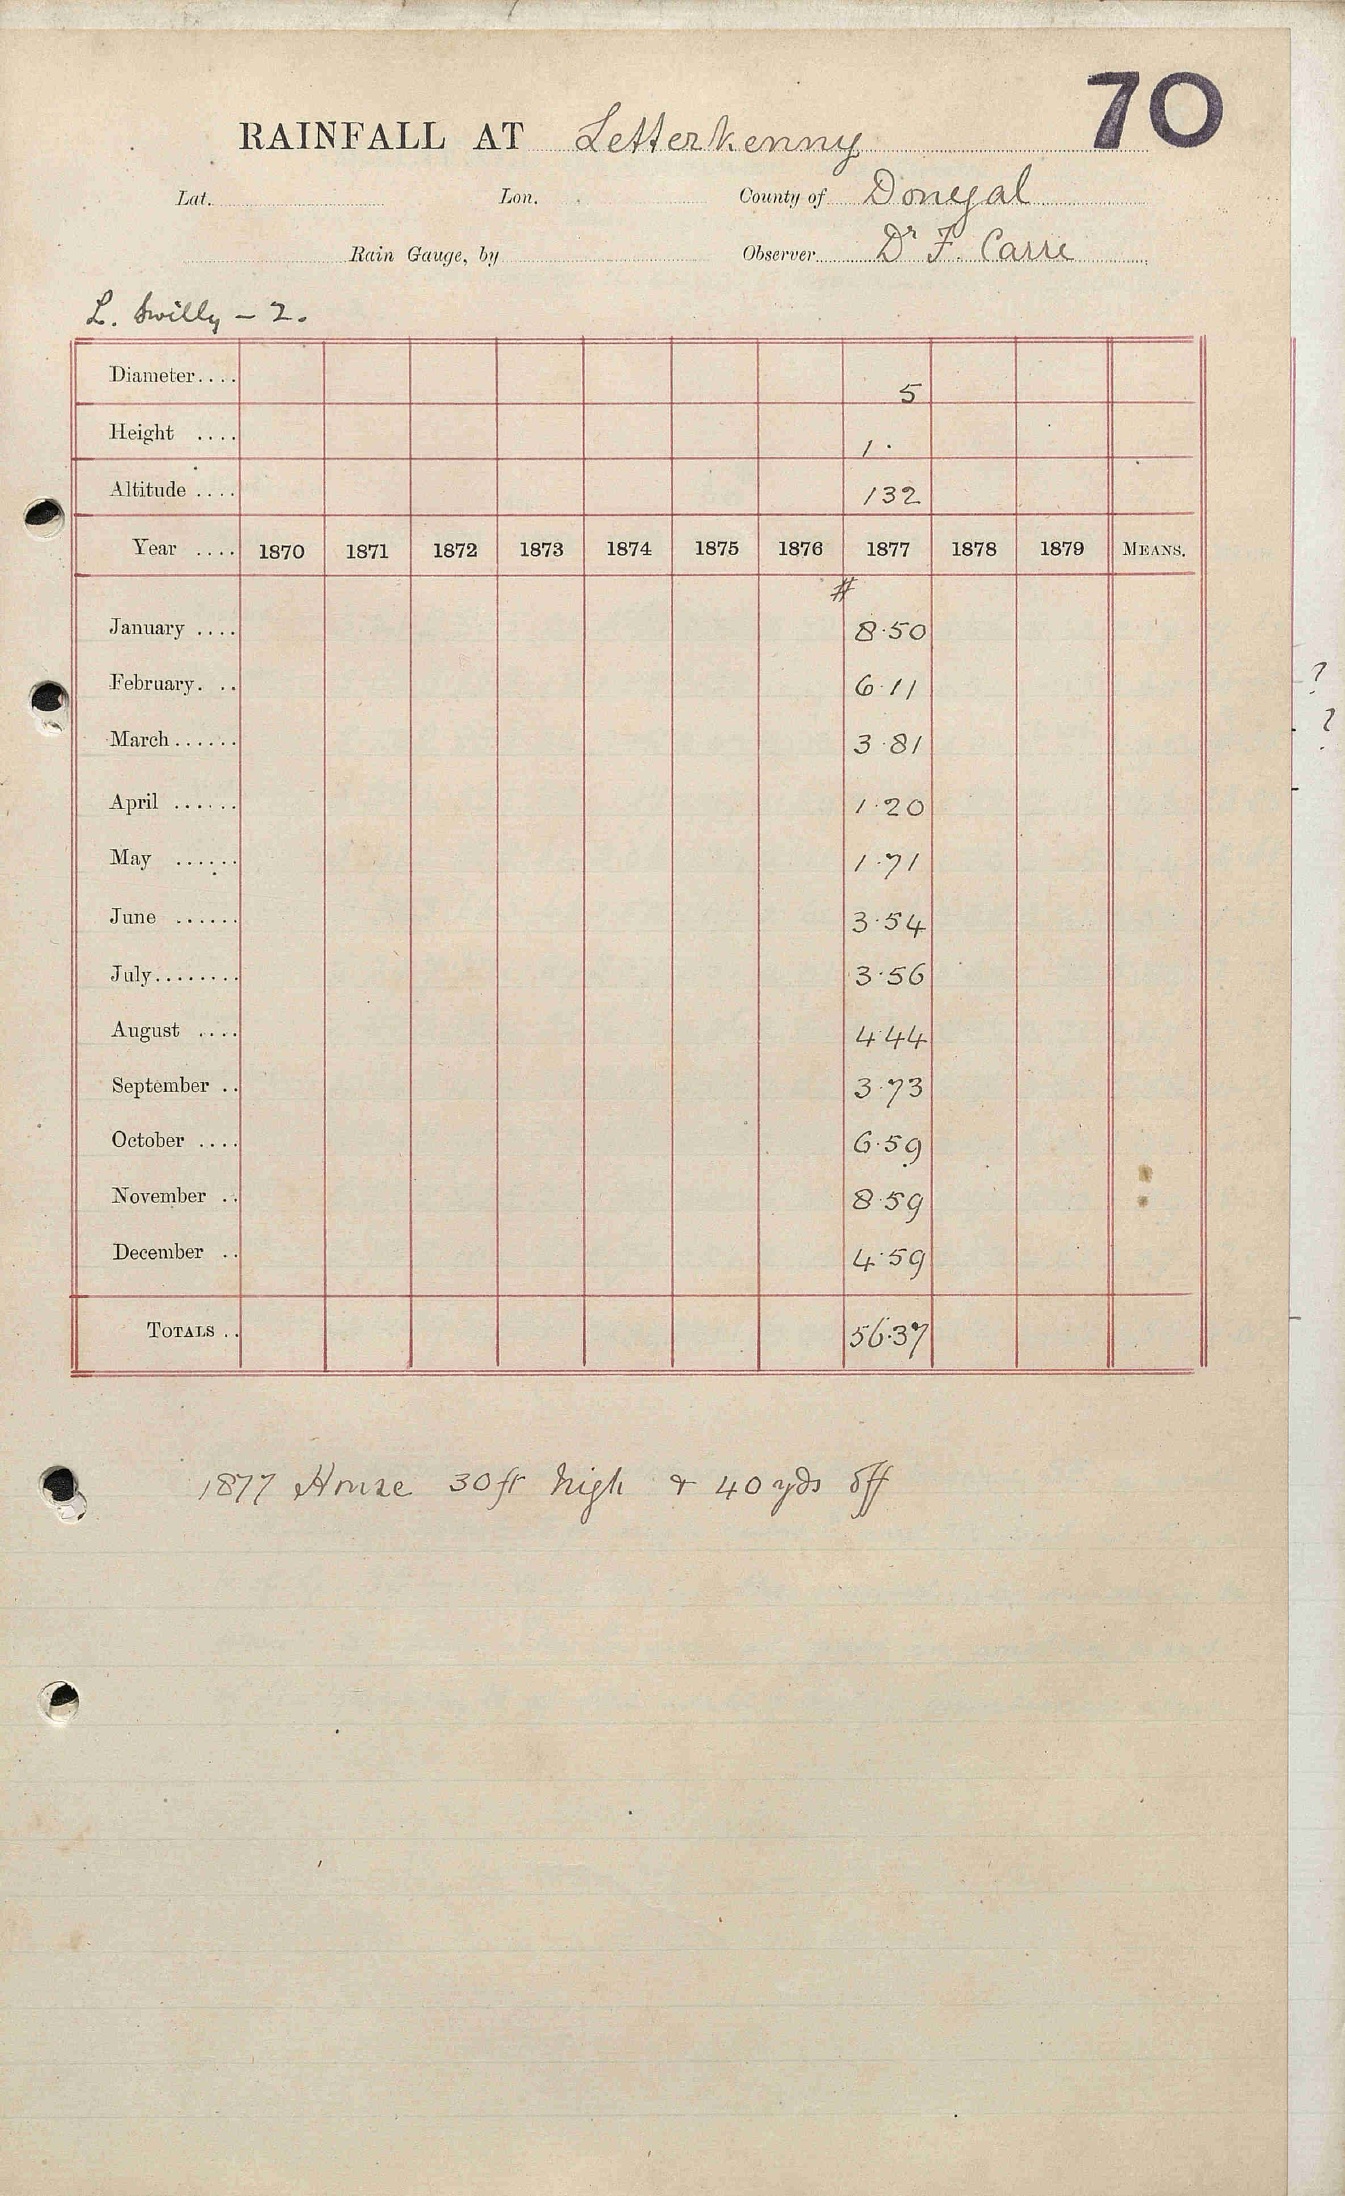 70
RAINFALL AT Letterkenny
Lat. Lon. County of Donegal
Rain Gauge, by Observer Dr F. Carre
L. Swilly – 2.
Diameter.... 5
Height .... 1 ·
Altitude .... 132
Year .... 1870 1871 1872 1873 1874 1875 1876 1877 1878 1879 MEANS.
#
January .... 8·50
February. .. 6·11
March...... 3·81
April ...... 1·20
May ...... 1·71
June ...... 3·54
July........ 3·56
August .... 4·44
September .. 3·73
October .... 6·59
November .. 8·59
December .. 4·59
TOTALS .. 56·37
1877 House 30ft high & 40 yds off
?
?